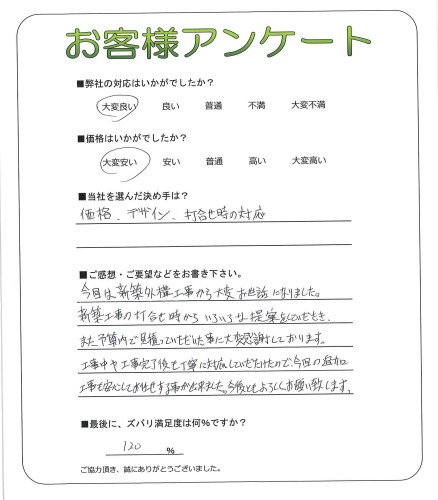 お客様アンケート
■弊社の対応はいかがでしたか?
大変良い 良い 普通 不満 大変不満
■価格はいかがでしたか?
大変安い 安い 普通 高い 大変高い
■当社を選んだ決め手は?
価格、デザイン、打合せ時の対応
■ご感想・ご要望などをお書き下さい。
今回は新築外構工事から大変お世話になりました。
新築工事の打合せ時からいろいろな提案をしていただき、
また予算内で見積っていただいた事に大変感謝しております。
工事中や工事完了後も丁寧に対応していただけたので、今回の追加
工事も安心してお任せする事が出来ました。今後ともよろしくお願い致します。
■最後に、ズバリ満足度は何%ですか?
120 %
ご協力頂き、誠にありがとうございました。